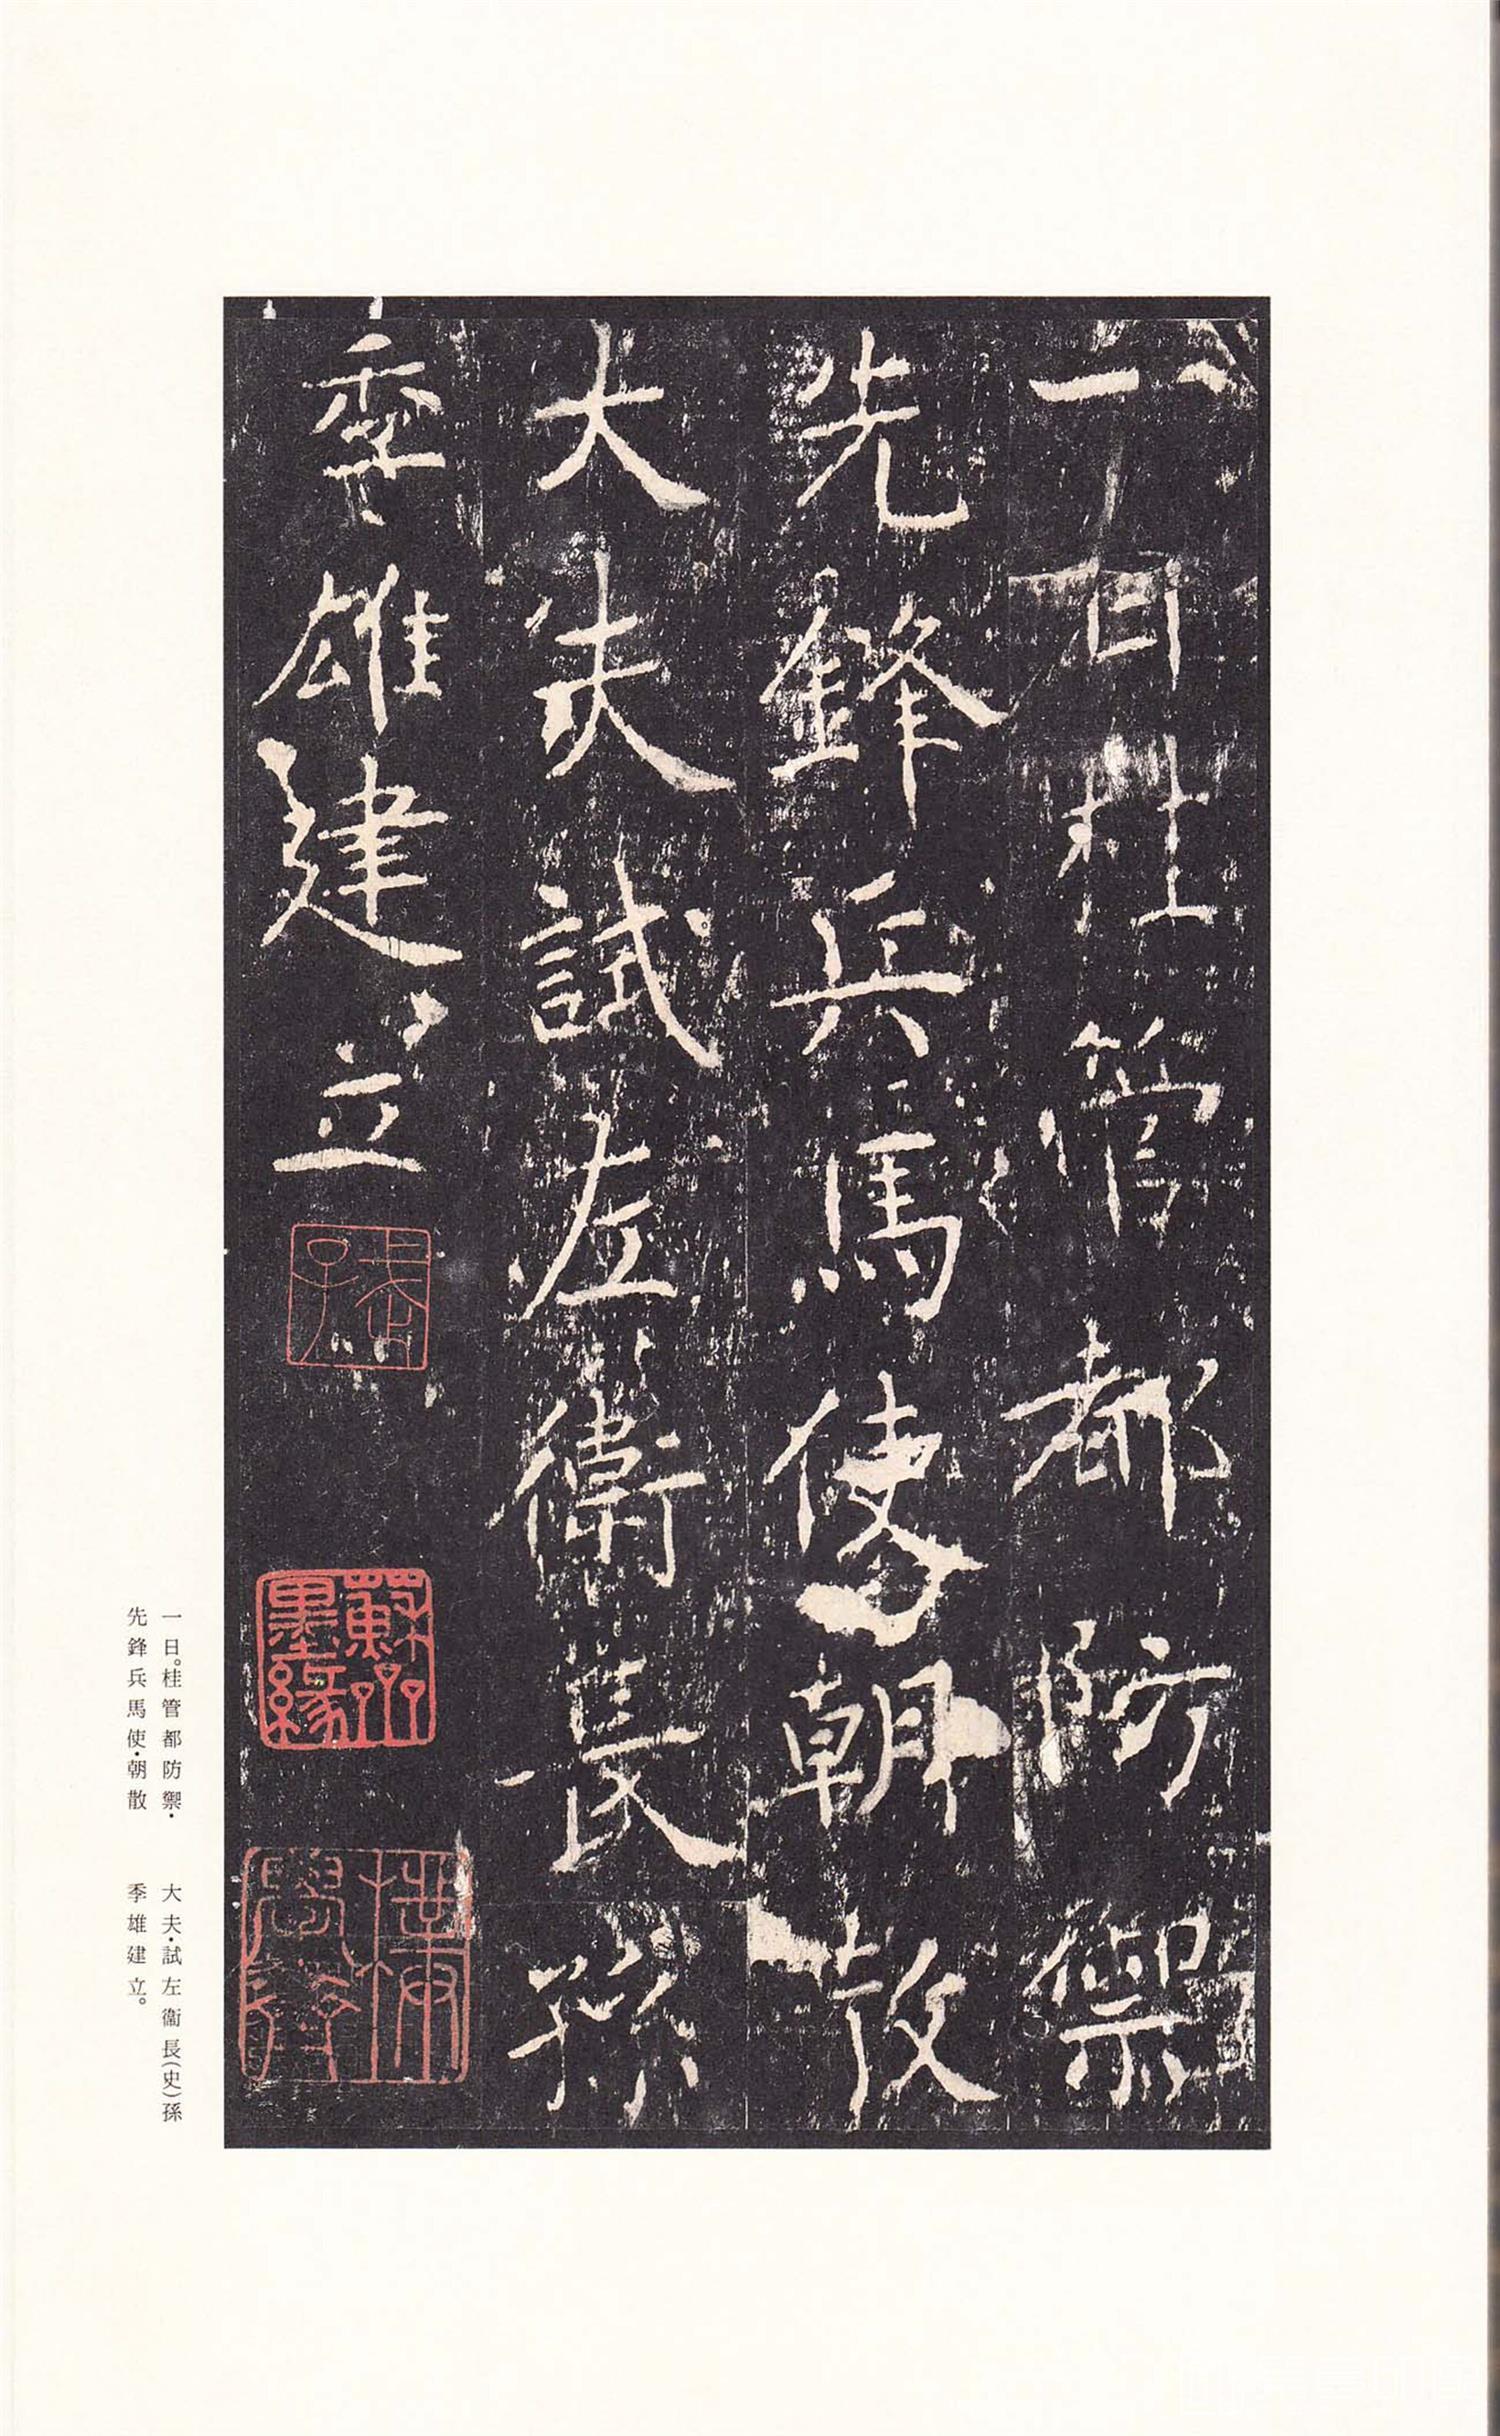 一日桂管都防禦
先鋒兵馬使朝散
大夫試左衞長孫
季雄建立
蘇齋墨緣
一日。桂管都防禦·
先鋒兵馬使·朝散
大夫·試左衞長(史)孫
季雄建立。